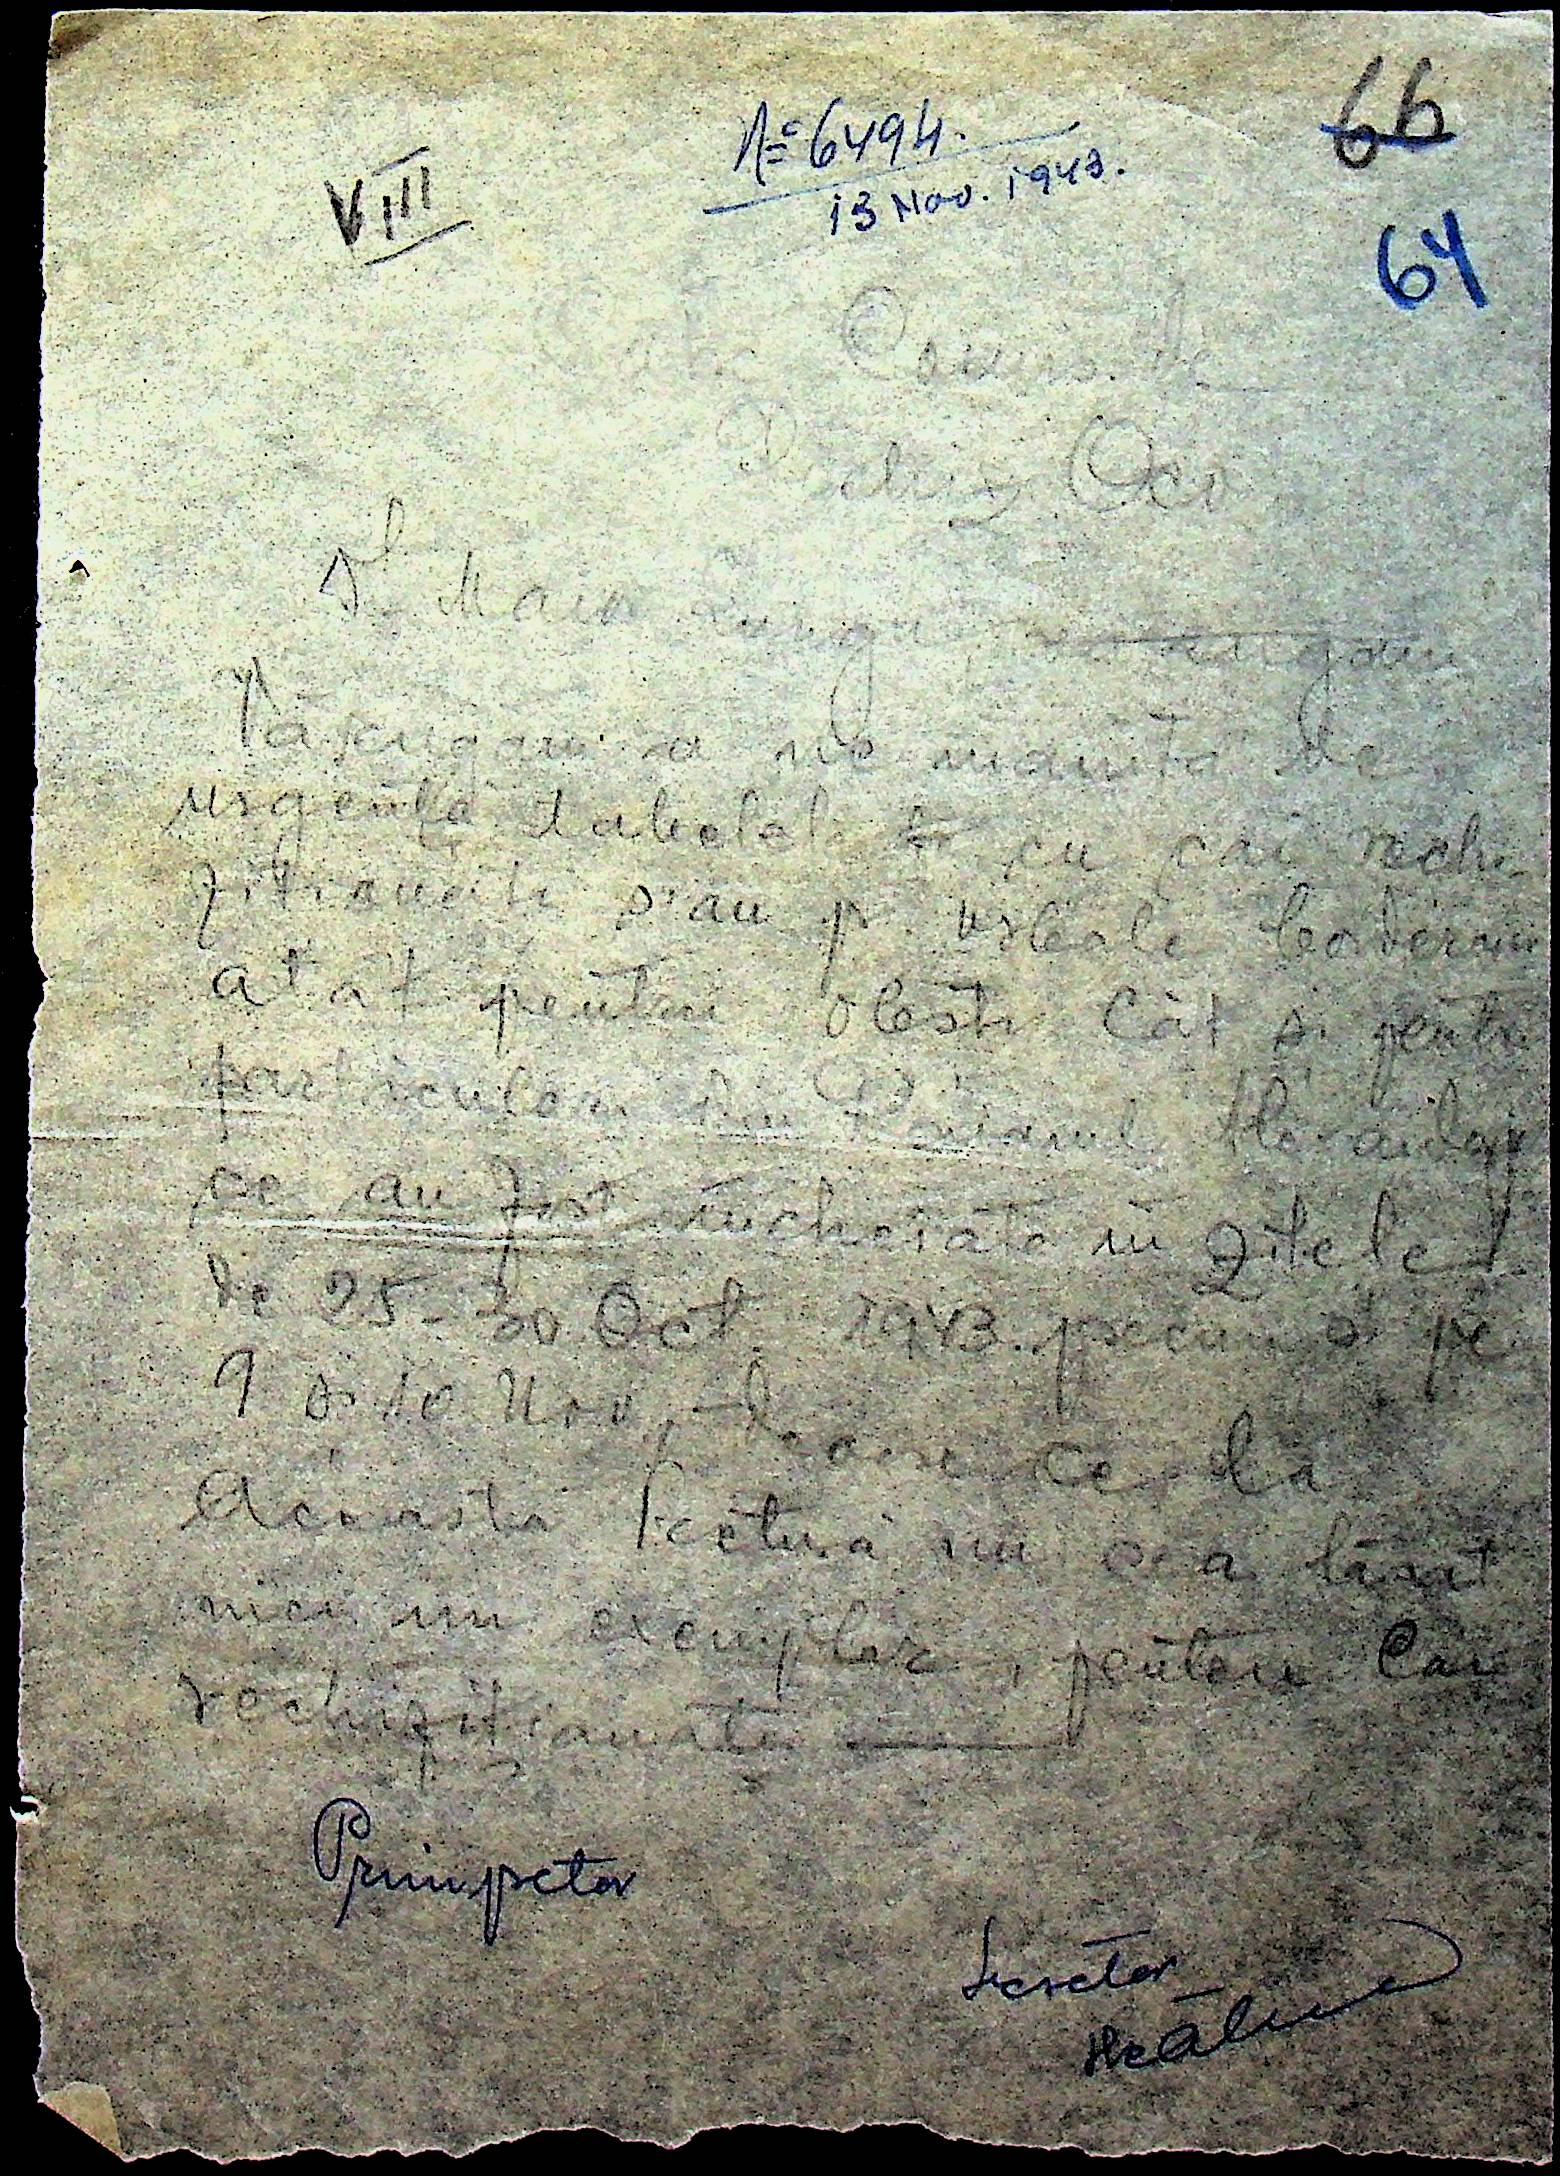 66
VIII
No 6494.
13 Nov. 1943.
64
Către Comis. de
Rechiz. Ocr
Dl. Maior
Vă rugăm a ne înainta de
urgență tabelele cu cai rechi
ziționați s'au p.
atât pentru obști cât și pentru
particulari din Raionul
ce au fost încheiate în zilele
de 25-30 Oct. 1943. precum și pe
9 și 10 Nov. - deoare ce la
Această Pretură nu s-a lăsat
nici un exemplar, pentru Caii
rechiziționați
Prim pretor
Secretar